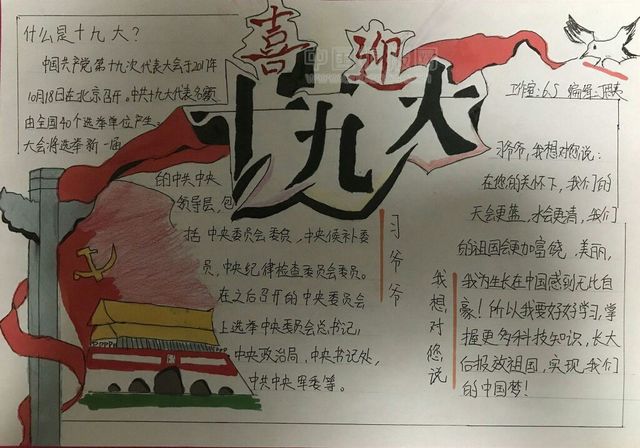 喜迎
十九大
什么是十九大?
中国共产党第十九次代表大会于2017年
10月18日在北京召开。中共十九大代表名额
由全国40个选举单位产生。
大会将选举新一届
的中共中央
领导层,包
括 中央委员会委员,中央候补委
员,中央纪律检查委员会委员。
在之后召开的中央委员会
上选举中央委员会总书记,
中央政治局,中央书记处,
中共中央军委等。
习爷爷
我想对您说
习爷爷,我想对您说:
在您的关怀下,我们的
天会更蓝,水会更清,我们
的祖国会更加富饶,美丽,
我为生长在中国感到无比自
豪!所以我要好好学习,掌
握更多科技知识,长大
后报效祖国,实现我们
的中国梦!